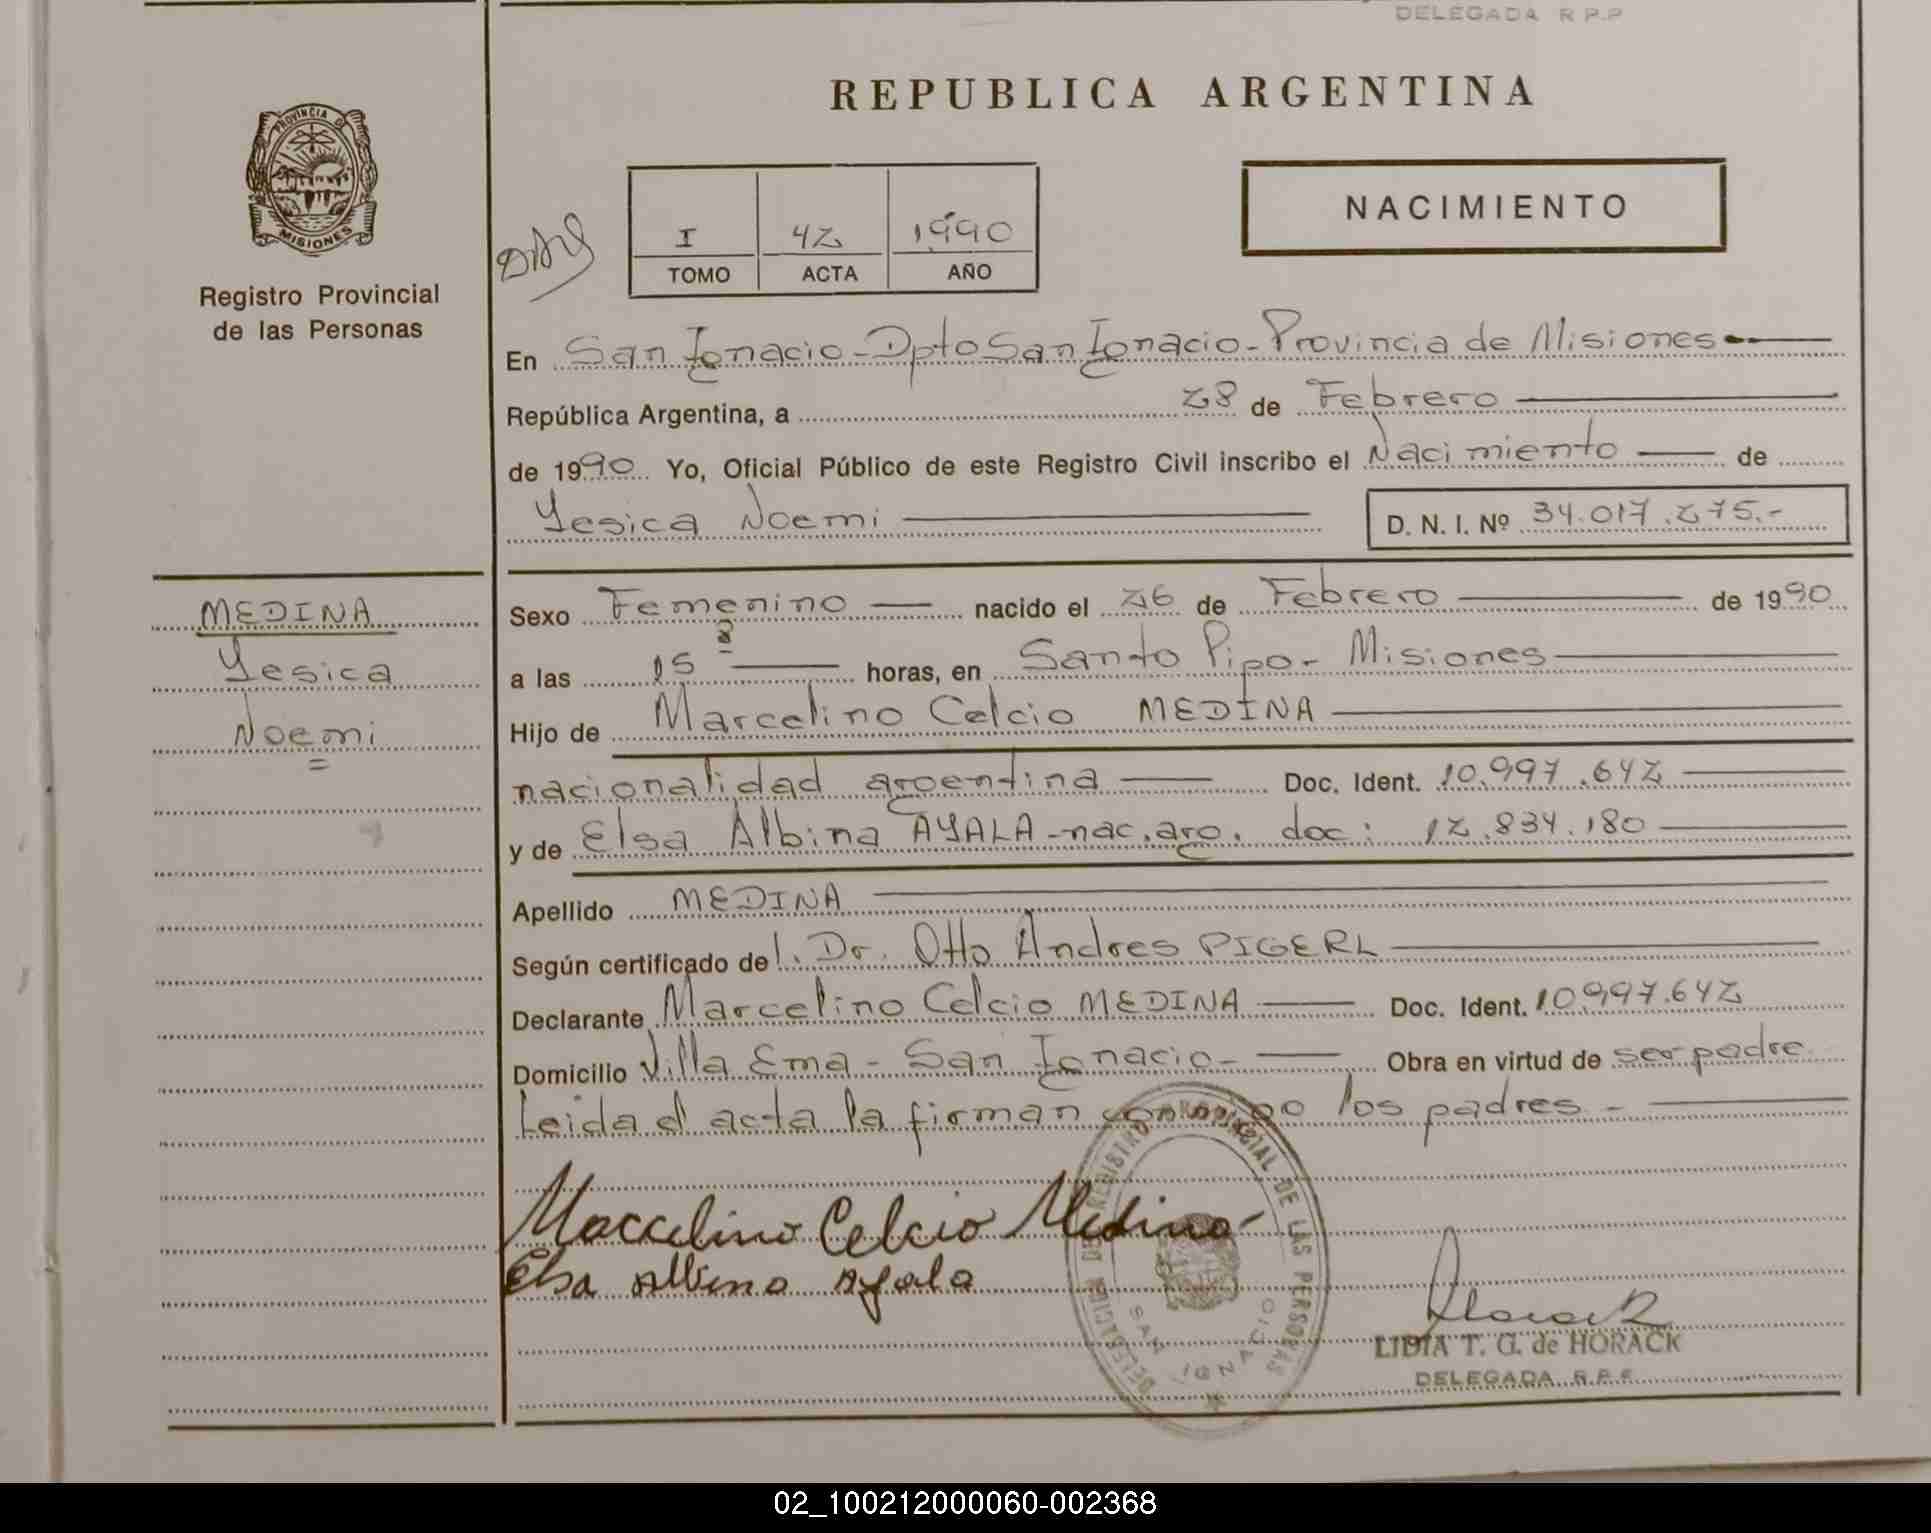 DELEGADA R.P.P
REPUBLICA ARGENTINA
PROVINCIA DE
MISIONES
Registro Provincial
de las Personas
I 42 1990
TOMO ACTA AÑO
NACIMIENTO
En San Ignacio-Dpto San Ignacio-Provincia de Misiones
República Argentina, a 28 de Febrero
de 1990 Yo, Oficial Público de este Registro Civil inscribo el Nacimiento de
Yesica Noemi D. N. I. Nº 34.017.275.-
MEDINA
Yesica
Noemi
Sexo Femenino nacido el 26 de Febrero de 1990
a las 15 horas, en Santo Pipo- Misiones
Hijo de Marcelino Celcio MEDINA
nacionalidad argentina Doc. Ident. 10.997.642
y de Elsa Albina AYALA-nac.arg. doc: 12.834.180
Apellido MEDINA
Según certificado del Dr. Otto Andres PIGERL
Declarante Marcelino Celcio MEDINA Doc. Ident. 10.997.642
Domicilio Villa Ema - San Ignacio- Obra en virtud de ser padre
Leida el acta la firman conmigo los padres -
Marcelino Celcio Medina
Elsa Albina Ayala
DELEGACION DE REGISTRO PROVINCIAL DE LAS PERSONAS
SAN IGNACIO
LIDIA T. G. de HORACK
DELEGADA R.P.P.
02_100212000060-002368